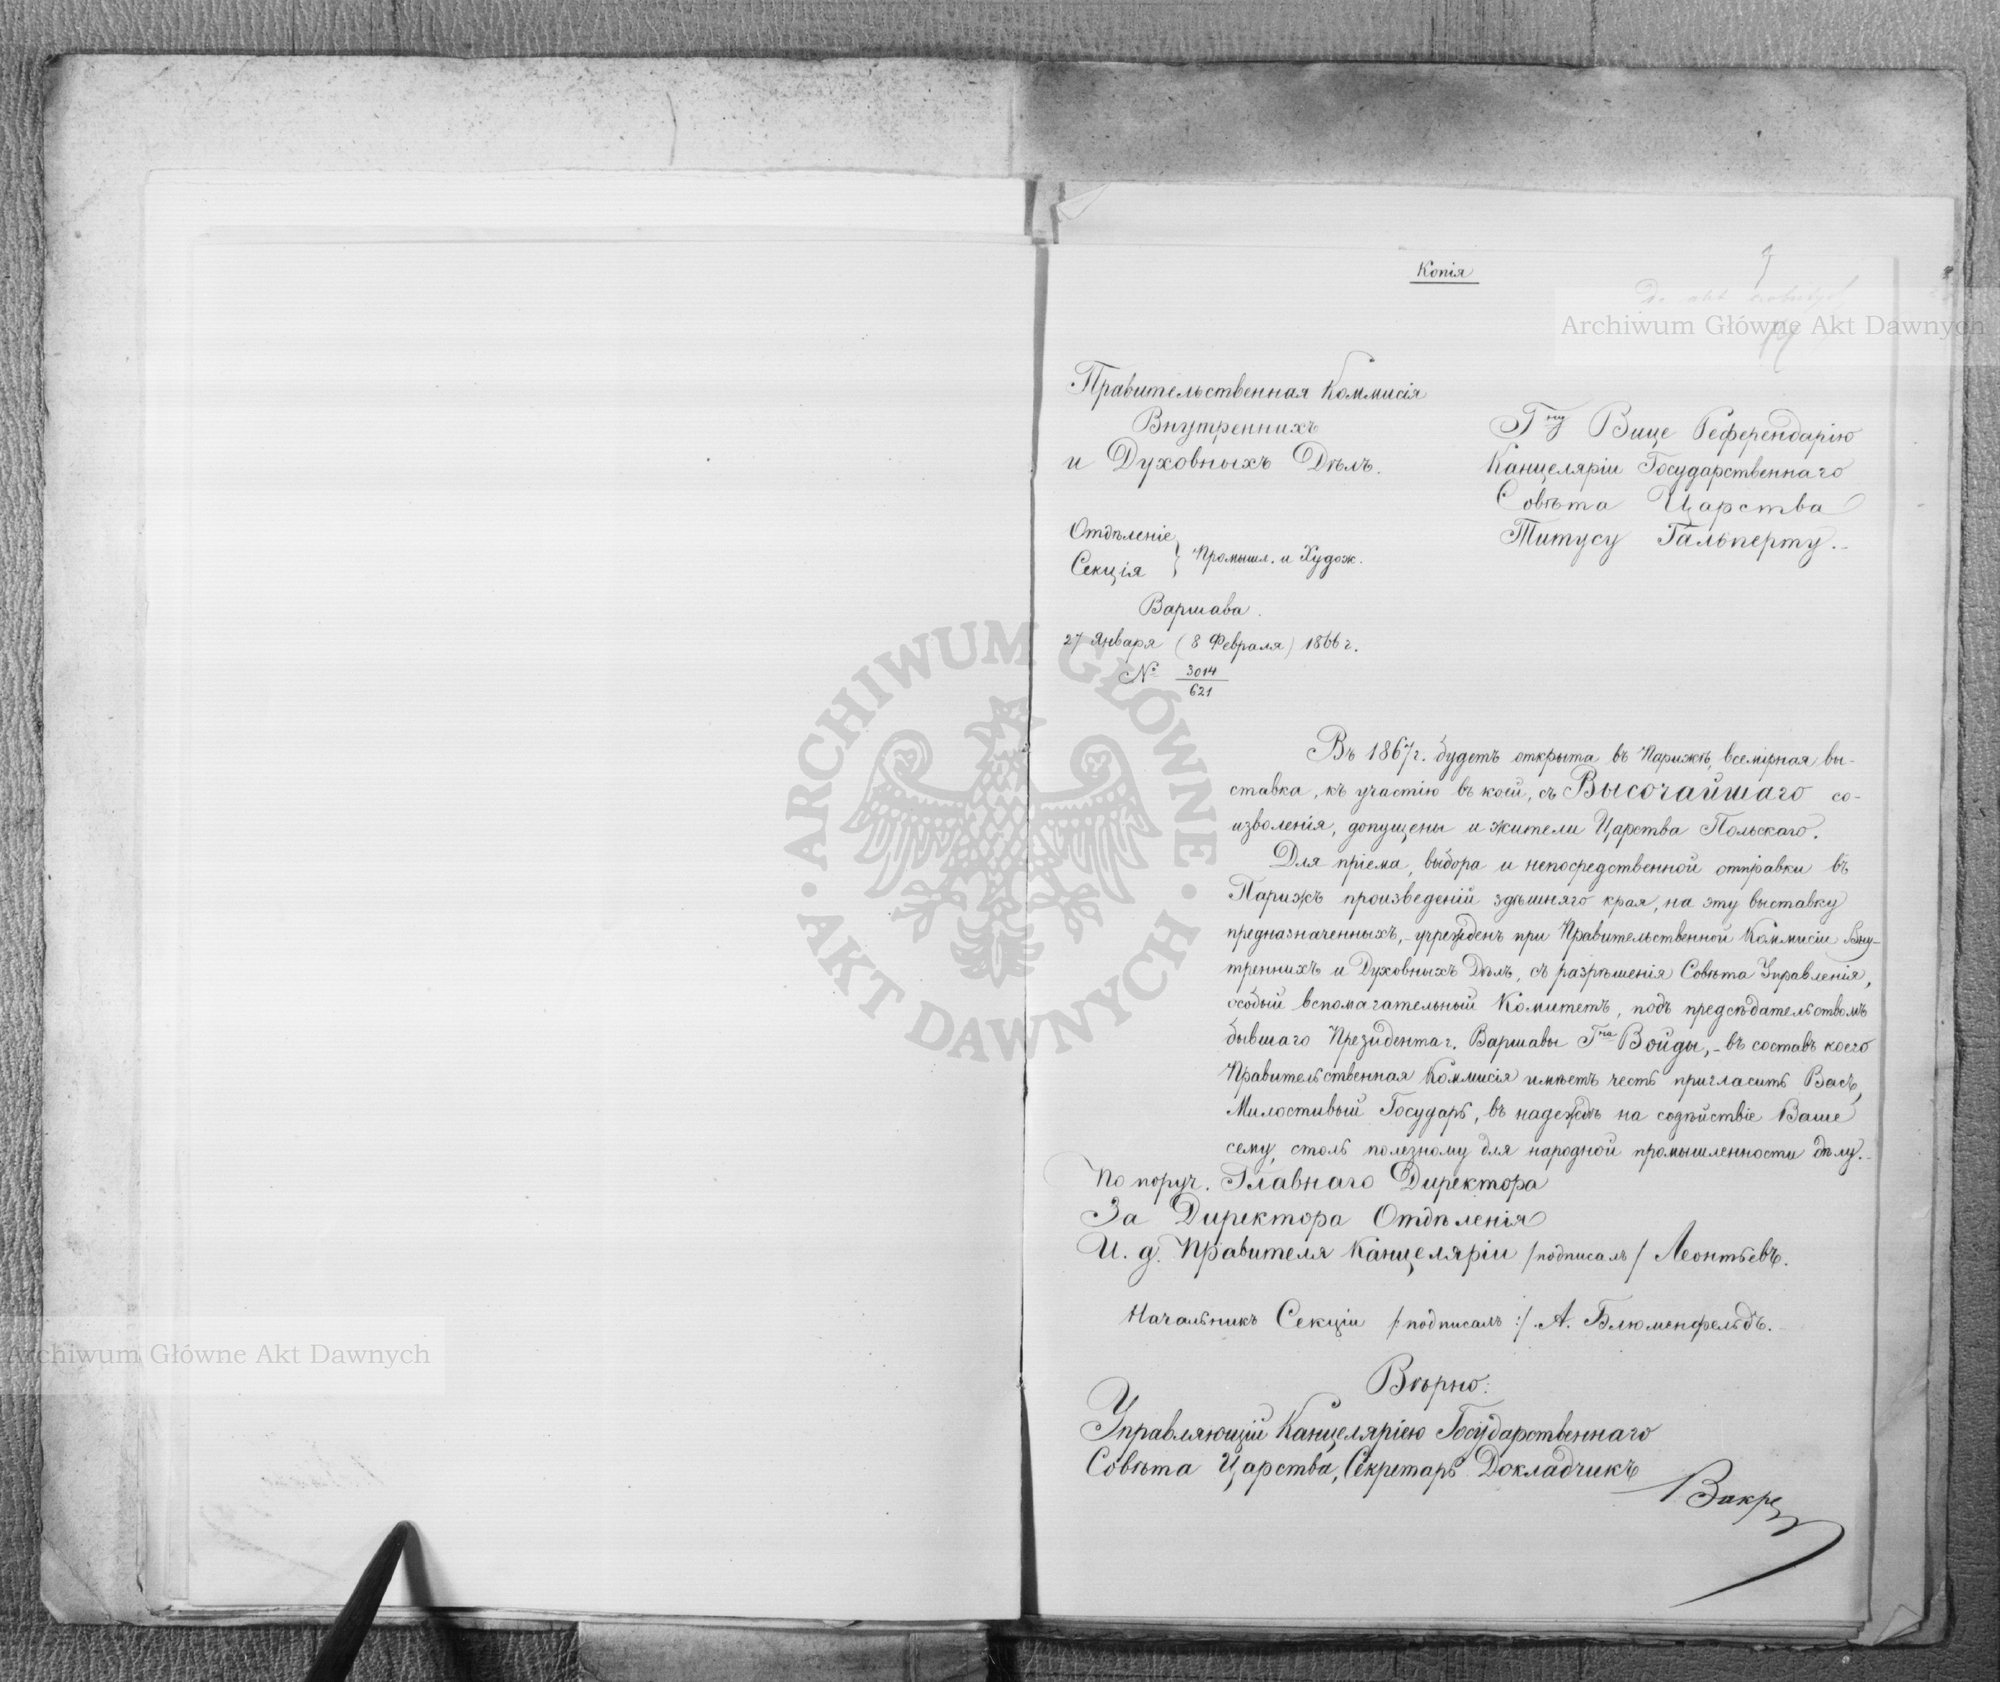 Копія
9
Do akt
Archiwum Główne Akt Dawnych
Правительственная Коммисія
Внутреннихъ
и Духовныхъ Дѣлъ.
Гну Вице Референдарію
Канцеляріи Государственнаго
Совѣта Царства
Титусу Гальперту.
Отдѣленіе
Секція } Промышл. и Худож.
Варшава.
27 Января (8 Февраля) 1866 г.
№ 3014/621
Въ 1867 г. будетъ открыта въ Парижѣ, всемірная вы-
ставка, къ участію въ коей, съ Высочайшаго со-
изволенія, допущены и жители Царства Польскаго.
Для пріема, выбора и непосредственной отправки въ
Парижъ произведеній здѣшняго края, на эту выставку
предназначенныхъ, - учрежденъ при Правительственной Коммисіи Вну-
треннихъ и Духовныхъ Дѣлъ, съ разрѣшенія Совѣта Управленія,
особый вспомагательный Комитетъ, подъ предсѣдательствомъ
бывшаго Президента г. Варшавы Гна Войды, - въ составъ коего
Правительственная Коммисія имѣетъ честь пригласить Васъ,
Милостивый Государь, въ надеждѣ на содѣйствіе Ваше
сему, столь полезному для народной промышленности дѣлу.-
По поруч. Главнаго Директора
За Директора Отдѣленія
И. д. Правителя Канцеляріи /подписалъ/ Леонтьевъ.
Начальникъ Секціи /:подписалъ:/ А. Блюменфельдъ.
Вѣрно:
Управляющій Канцеляріею Государственнаго
Совѣта Царства, Секретарь Докладчикъ
Archiwum Główne Akt Dawnych
ARCHIWUM GŁÓWNE AKT DAWNYCH